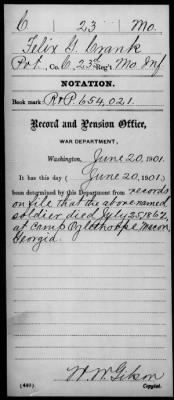 C 23 Mo.
Felix G. Crank
Pvt., Co. C, 23d Reg't Mo. Inf.
NOTATION.
Book mark: R & P. 654,021.
Record and Pension Office,
WAR DEPARTMENT,
Washington, June 20, 1901.
It has this day (June 20, 1901.)
been determined by this Department from records
on file that the above named
soldier died July 25 1862,
at Camp Oglethorpe Macon,
Georgia.
W. W. Gibson
(440) Copyist.